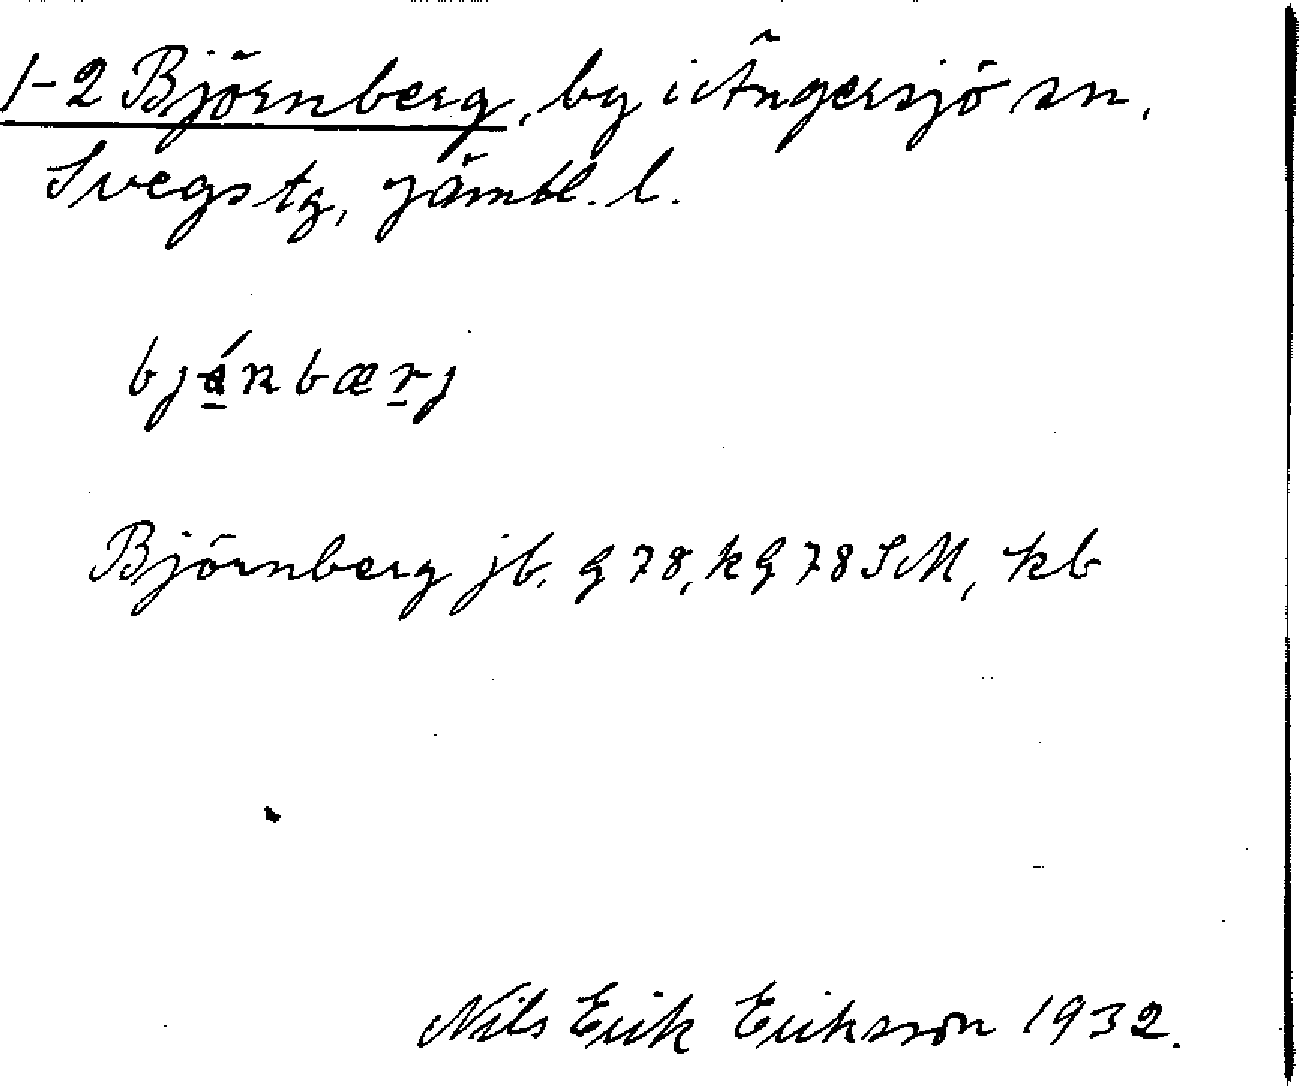 1-2 Björnberg, by i Ängersjö sn,
Svegs tg, Jämtl. l.
bjánbærj
Björnberg jb. G 78, kG 78 SM, kb
Nils Erik Eriksson 1932.